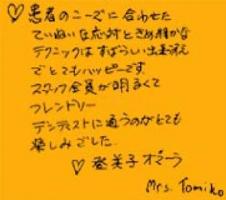 ♡患者のニーズに合わせた
ていねいな応対ときめ細かな
テクニックはすばらしい出来栄え
でとてもハッピーです。
スタッフ全員が明るくて
フレンドリー
デンティストに通うのがとても
楽しみでした。
♡登美子オマーラ
Mrs. Tomiko